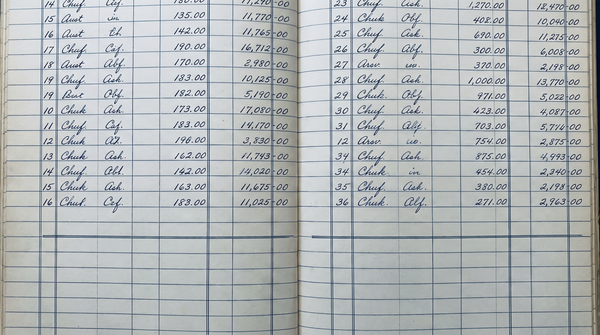 14 Chuf. Auf. 180.00 11,290-00
15 Aust in 135.00 11,770-00
16 Aust Eh. 142.00 11,765-00
17 Chuf. Caf. 190.00 16,712-00
18 Aust Abf. 170.00 2,980-00
19 Chuf. Ask. 183.00 10,125-00
19 Obf. 182.00 5,190-00
10 Chuk Ask. 173.00 17,080-00
11 Chuf. Caf. 183.00 14,170-00
12 Chuk 196.00 3,830-00
13 Chuk Ash. 162.00 11,743-00
14 Chuf. Obl. 142.00 14,020-00
15 Chuk Ask. 163.00 11,675-00
16 Chuk Cef. 183.00 11,025-00
23 Chuf. Ask. 1,270.00 18,470-00
24 Chuk Obf. 408.00 10,040-00
25 Chuf. Ask. 690.00 11,275-00
26 Chuf. Abf. 300.00 6,008-00
27 Arsv. uo. 370.00 2,198-00
28 Chuf. Ask. 1,000.00 13,770-00
29 Chuk. Obf. 971.00 5,022-00
30 Chuf. Ask. 423.00 4,087-00
31 Chuf. Alf. 703.00 -00
12 Arsv. uo. 754.00 2,875-00
34 Chuf. Ash. 875.00 4,993-00
34 Chuk in 454.00 2,340-00
35 Chuf. Ask. 380.00 2,198-00
36 Chuk. Alf. 271.00 2,963-00